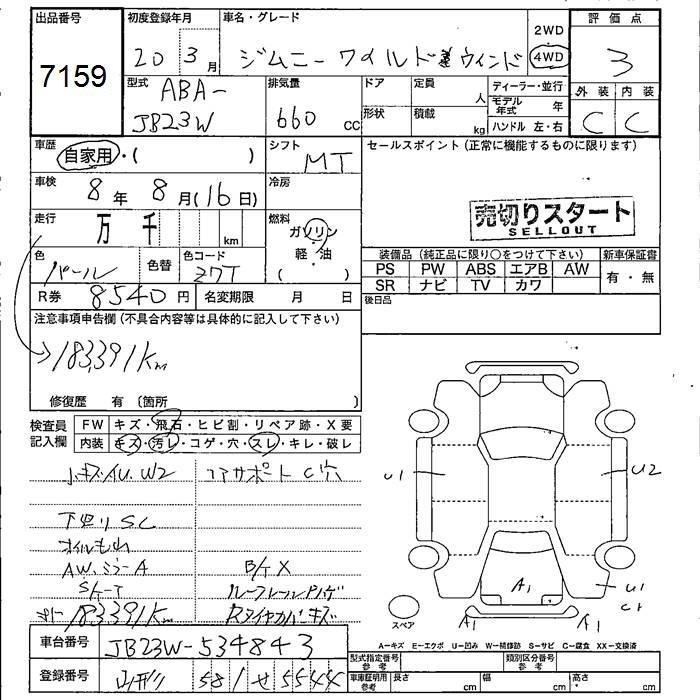 出品番号
7159
初度登録年月
20年 3月
車名・グレード
ジムニー ワイルドウィンド
2WD
4WD
評価点
3
外装 内装
C C
型式
ABA-
JB23W
排気量
660 CC
ドア
形状
定員 人
積載 kg
ディーラー・並行
モデル年式 年
ハンドル 左・右
車歴
自家用・( )
シフト
MT
セールスポイント (正常に機能するものに限ります)
車検
8年 8月(16日)
冷房
走行
万 千 km
燃料
ガソリン
・
軽油
売切りスタート
SELLOUT
色
パール
色替
色コード
Z7T
装備品 (純正品に限り○をつけて下さい)
新車保証書
PS PW ABS エアB AW
SR ナビ TV カワ
有・無
R券 8540円
名変期限 月 日
後日品
注意事項申告欄 (不具合内容等は具体的に記入して下さい)
183,391km
修復歴 有 〔箇所 〕
検査員
記入欄
FW キズ・飛石・ヒビ割・リペア跡・X要
内装 キズ・汚レ・コゲ・穴・スレ・キレ・破レ
小キズ・AU.W2
コアサポートC穴
下廻りSC
オイルもれ
AW.ミラーA
B/ケX
ルーフレールハゲ
Rタイヤカバーキズ
183391km
U1
U2
A1
U1
C1
スペア
A1
A1
A－キズ E－エクボ U－凹み W－補修跡 S－サビ C－腐食 XX－交換済
車台番号
JB23W-534843
登録番号
山形 581 せ 5544
型式指定番号
参考
類別区分番号
参考
車庫証明用
参考
長さ cm
幅 cm
高さ cm